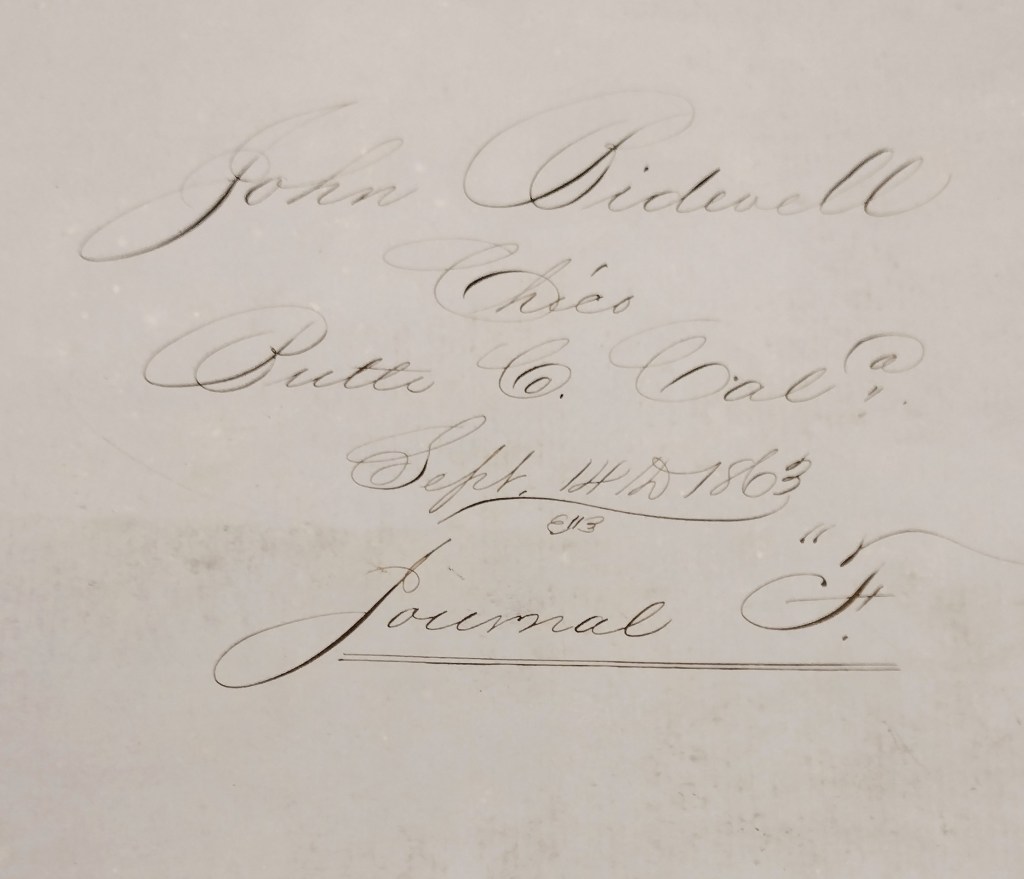 John Bidwell
Chico
Butte C. Cal.ª
Sept. 14th 1863
Journal "F.